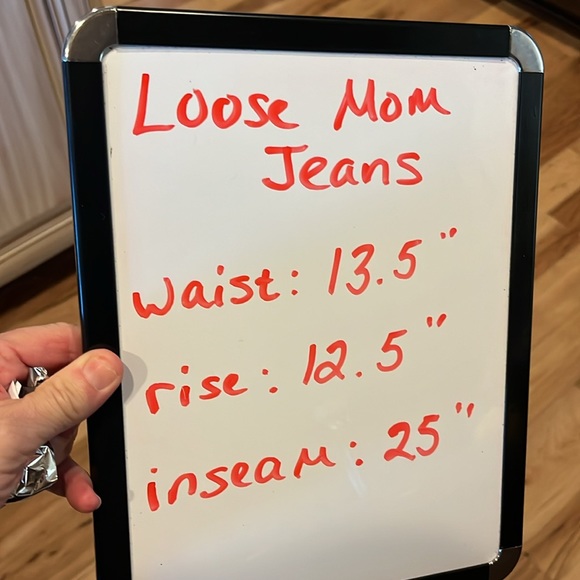 Loose Mom
Jeans
waist: 13.5"
rise: 12.5"
inseam: 25"